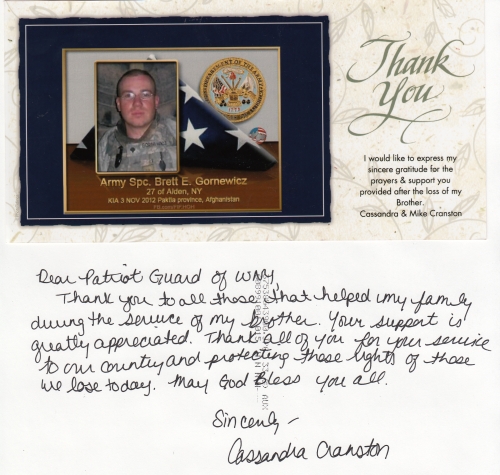 Thank
You
DEPARTMENT OF THE ARMY
Army Spc. Brett E. Gornewicz
27 of Alden, NY
KIA 3 NOV 2012 Paktia province, Afghanistan
I would like to express my
sincere gratitude for the
prayers & support you
provided after the loss of my
Brother.
Cassandra & Mike Cranston
Dear Patriot Guard of WNY
Thank you to all those that helped my family
during the service of my brother. Your support is
greatly appreciated. Thank all of you for your service
to our country and protecting those rights of those
we lose today. May God Bless you all.
Sincerely -
Cassandra Cranston